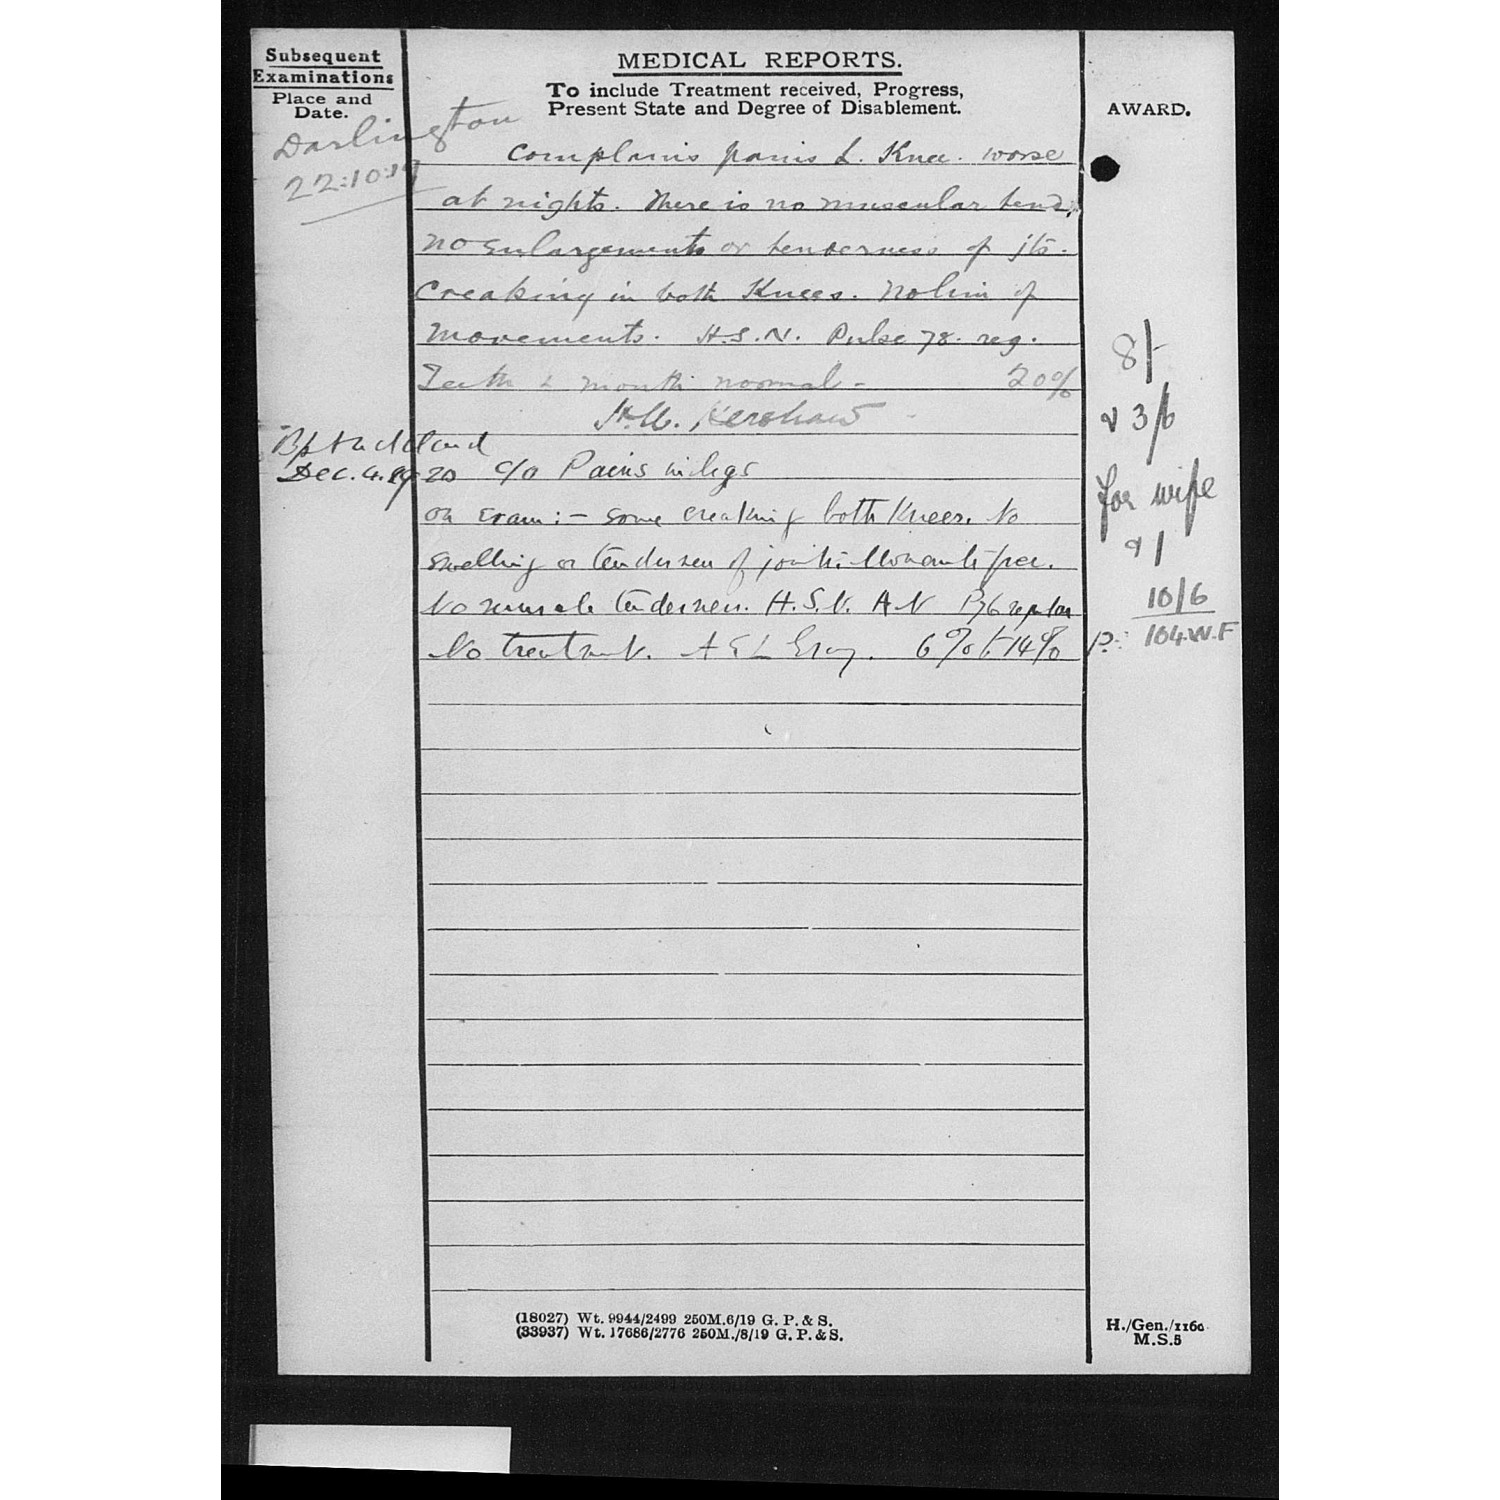 Subsequent
Examinations
Place and
Date.
MEDICAL REPORTS.
To include Treatment received, Progress,
Present State and Degree of Disablement.
AWARD.
Darlington
22:10:19
Complains pains L. Knee. worse
at nights. There is no muscular tend.
no enlargements or tenderness of jts.
Creaking in both Knees. No lim of
movements. H.S.N. Pulse 78. reg.
Teeth & mouth normal - 20%
Kershaw
Bp Auckland
Dec. 4. 1920 c/o Pains in legs
on exam :- some creaking both Knees. No
swelling or tenderness of joints. Movements free.
No muscle tenderness. H.S.N. A N P 76 regular
No treatment. A E L Gray. 6% to 14%
8/-
& 3/6
for wife
& 1
10/6
104.W.F
(18027) Wt. 9944/2499 250M.6/19 G. P. & S.
(33937) Wt. 17686/2776 250M./8/19 G. P. & S.
H./Gen./1160
M.S.5